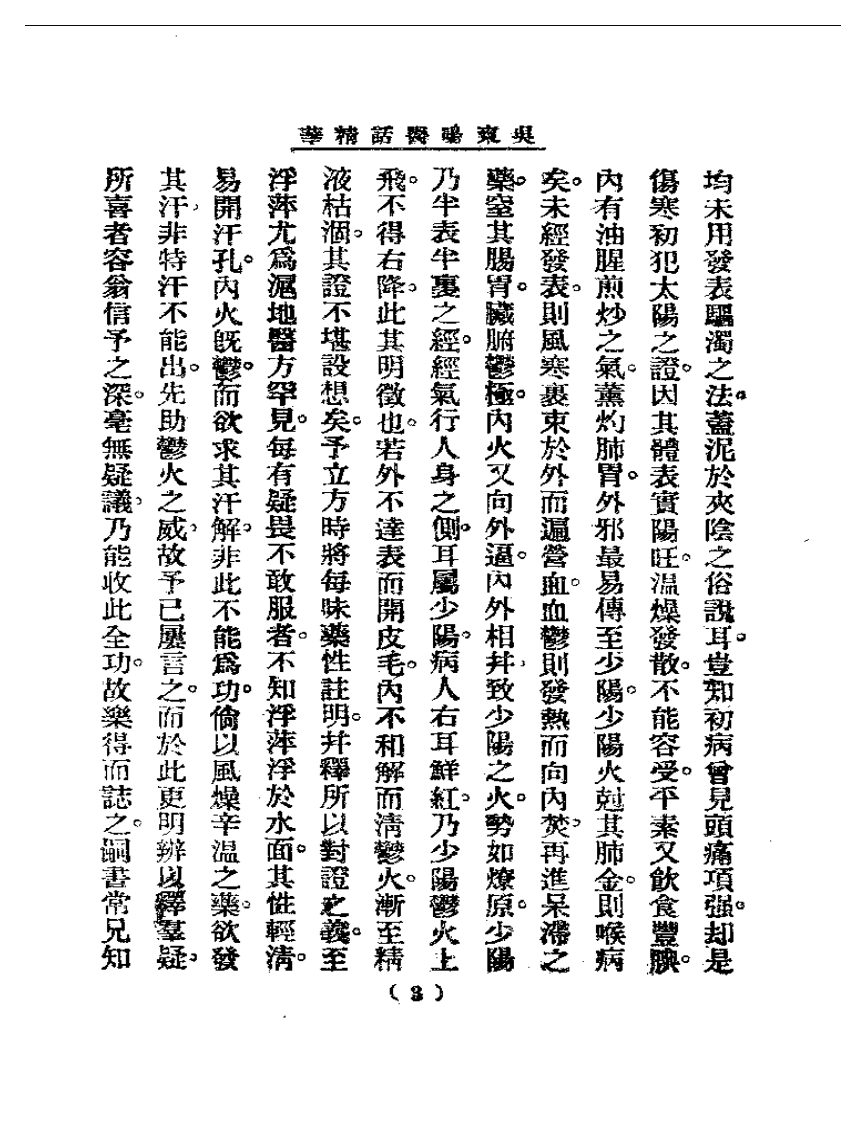 吳東暘醫話精華
均未用發表驅濁之法。蓋泥於夾陰之俗說耳。豈知初病曾見頭痛項强。却是
傷寒初犯太陽之證。因其體表實陽旺。温燥發散。不能容受。平素又飲食豐腴。
內有油腥煎炒之氣。薰灼肺胃。外邪最易傳至少陽。少陽火尅其肺金。則喉病
矣。未經發表。則風寒裹束於外而遏營血。血鬱則發熱而向內焚。再進呆滯之
藥。窒其腸胃。臟腑鬱極。內火又向外逼。內外相幷。致少陽之火。勢如燎原。少陽
乃半表半裏之經。經氣行人身之側。耳屬少陽。病人右耳鮮紅。乃少陽鬱火上
飛。不得右降。此其明徵也。若外不達表而開皮毛。內不和解而清鬱火。漸至精
液枯涸。其證不堪設想矣。予立方時將每味藥性註明。幷釋所以對證之義。至
浮萍尤爲滬地醫方罕見。每有疑畏不敢服者。不知浮萍浮於水面。其性輕清。
易開汗孔。內火旣鬱。而欲求其汗解。非此不能爲功。倘以風燥辛温之藥。欲發
其汗。非特汗不能出。先助鬱火之威。故予已屢言之。而於此更明辨以釋羣疑。
所喜者容翁信予之深。毫無疑議。乃能收此全功。故樂得而誌之。嗣書常兄知
(3)